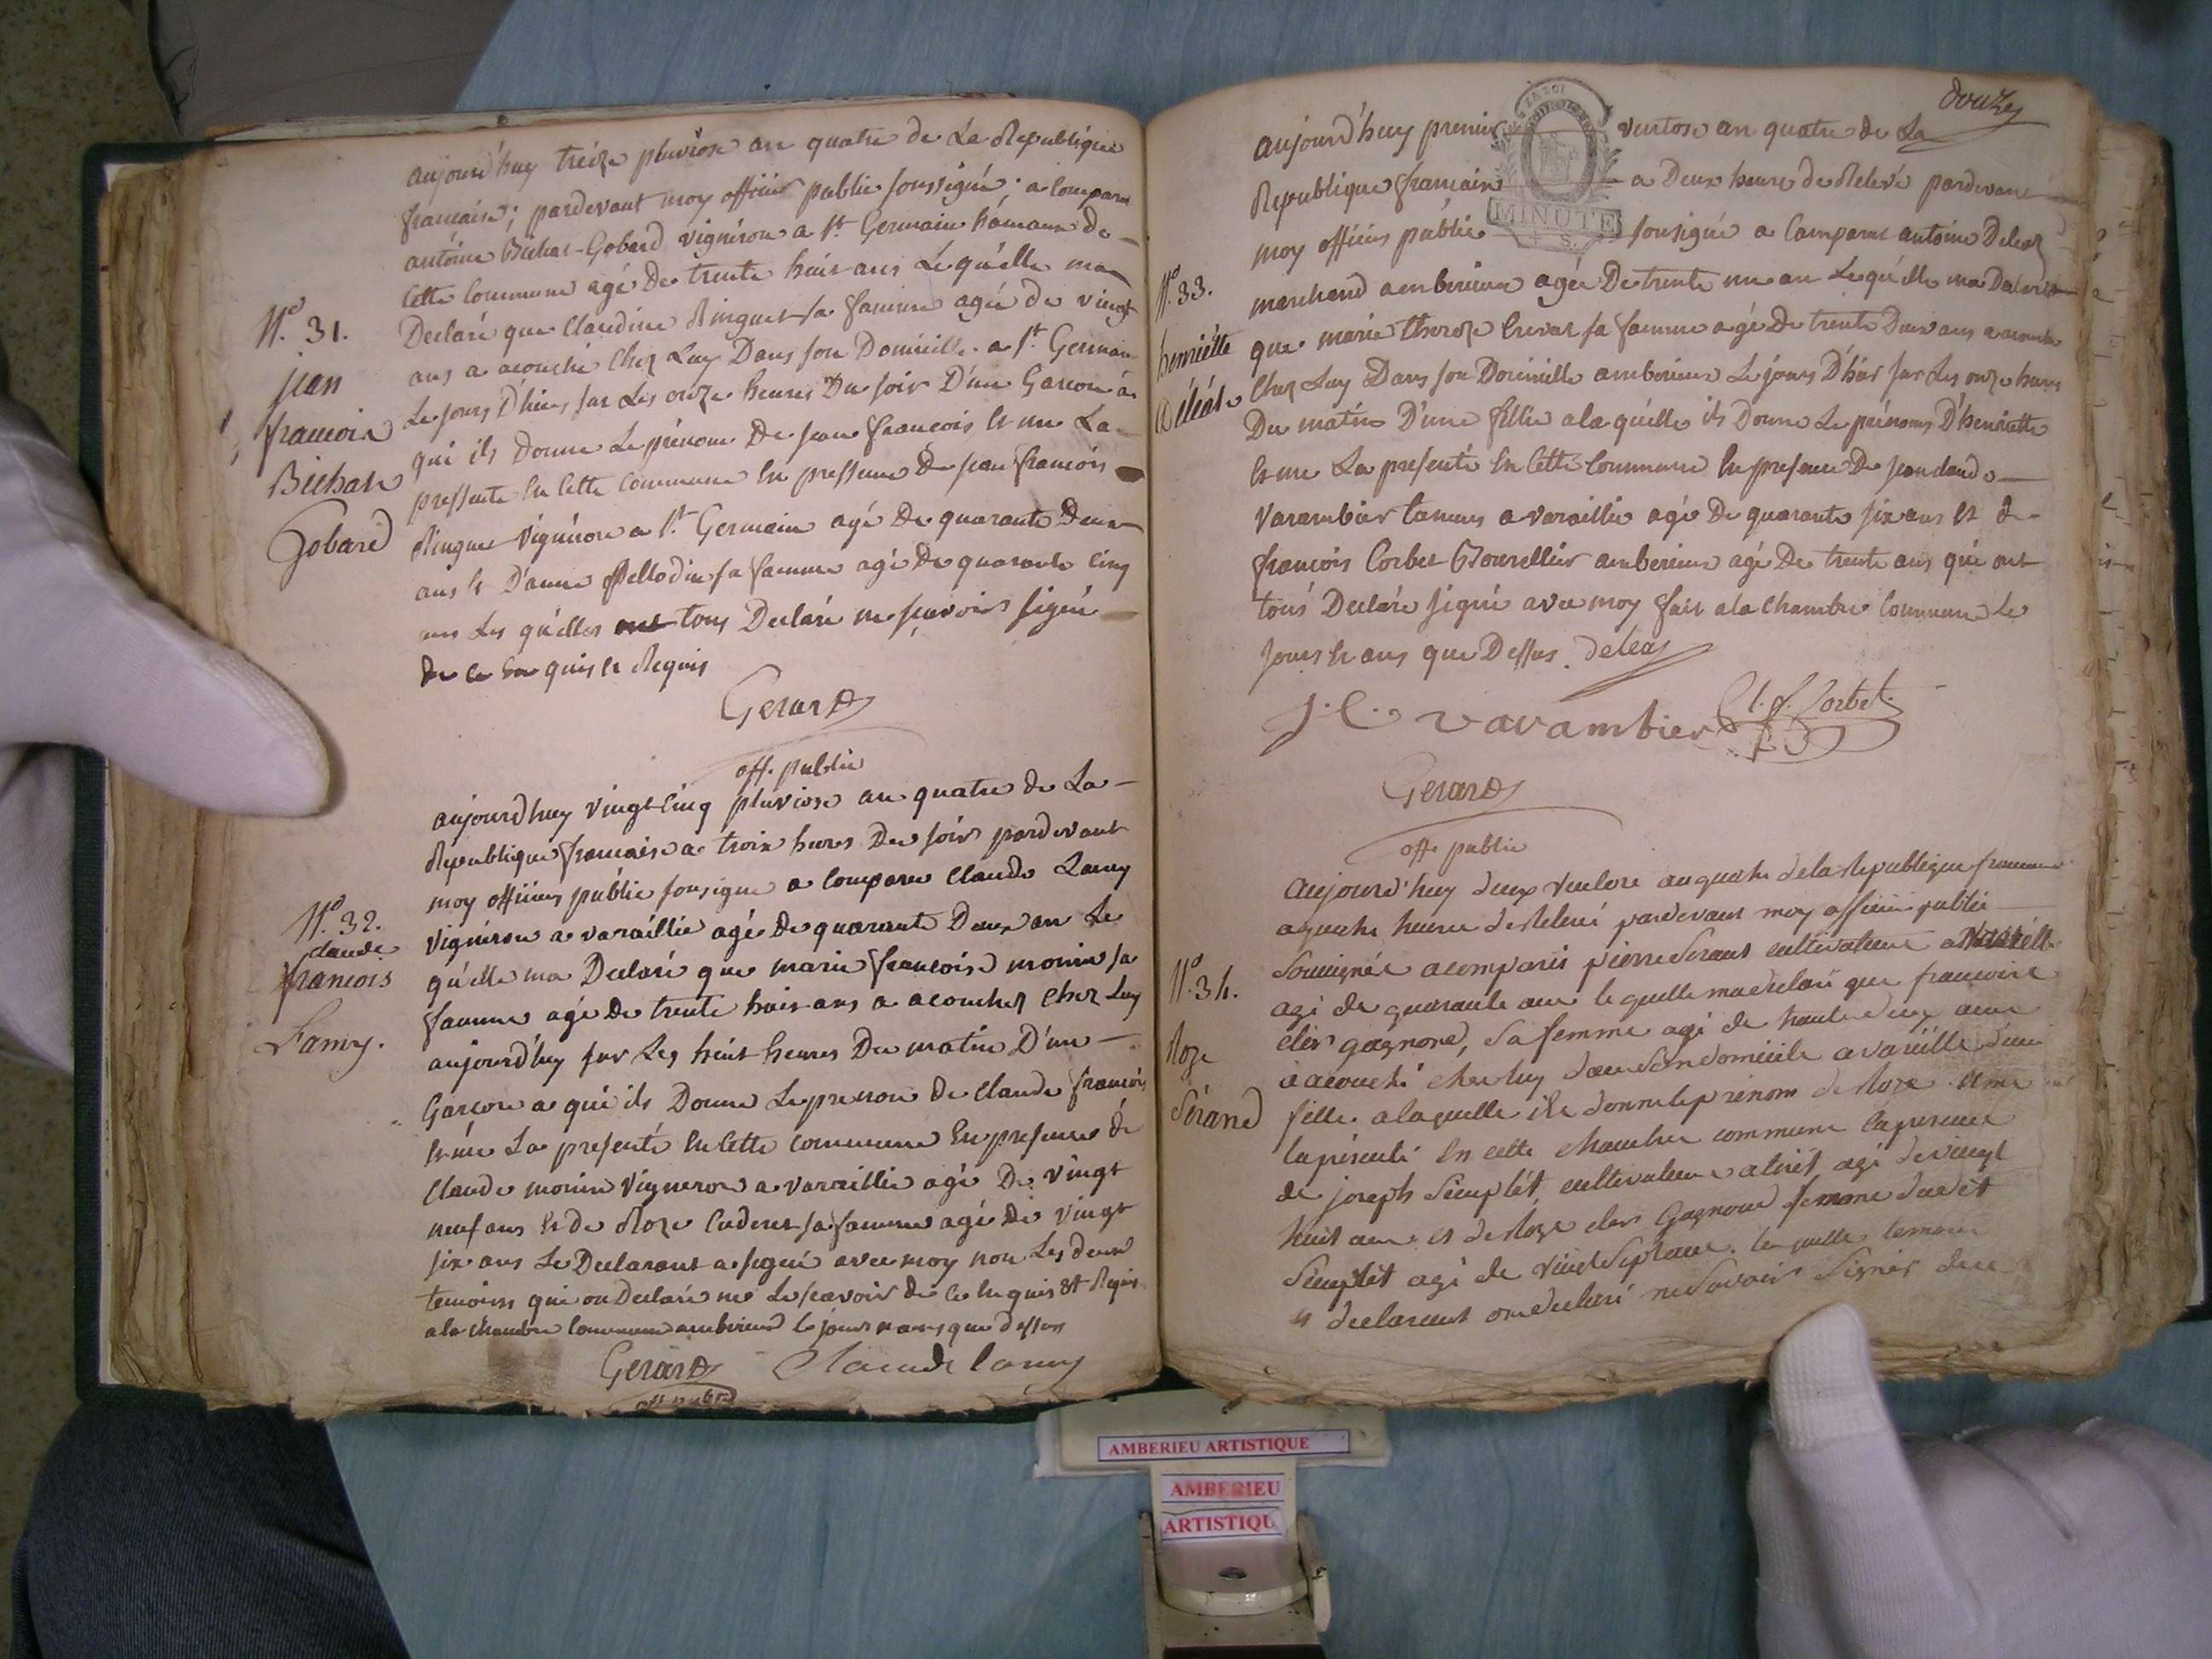 aujourd'huy treize pluviose an quatre de La Republique
française; pardevant moy officier public soussigné; a comparu
antoine Bichat-Gobard vigneron a St. Germain hameau de
Cette Commune agé De trente huit ans Lequ'elle ma
Declaré que Claudine Ringuet sa famme agée de vingt
ans a acouché Chez Luy Dans son Domicille a St. Germain
Le jours D'hier sur Les onze heures Du soir D'un Garcon a
qui ils Donne Le prénom De jean françois Et me La
pressente En Cette Commune En pressence De jean françois
Ringuet Vigneron a St. Germain agé De quarante Deux
ans Et D'anne sa famme agé De quarante Cinq
ans Les qu'elles ont tous Declaré ne sçavoir signé
de ce Enquis et Requis
Gerard
off. public
N.o 31.
jean
francois
Bichat
Gobard
aujourdhuy vingt Cinq pluviose an quatre de La
Republique francaise a troix heures Du soir pardevant
moy officier public sousigne a Comparu Claude Lamy
Vigneron a varaillie agé De quarante Deux an Le
qu'elle ma Declaré que marie françoise monin sa
famme agé De trente huit ans a acouchez Chez Luy
aujourd'huy sur Les huit heures Du matin D'un
Garcon a qui ils Donne Le prenom De Claude françois
Et me La presenté En Cette commune En presence de
Claude monin Vigneron a varaillie agé De vingt
neuf ans Et de Roze sa famme agé De vingt
six ans Le Declarant a signé avec moy non Les deux
temoins qui on Declaré ne Le scavoir de ce Enquis et Requis
a la Chambre Commune amberieux le jours et ans que dessus
Gerard Claude lamy
off public
N.o 32.
claude
francois
Lamy.
douze
aujourd'huy premier ventose an quatre de La
Republique francaise a Deux heure de Relevé pardevant
MINUTE
moy officier public sousigné a Comparut antoine Deleaz
marchand amberieux agée De trente un an Lequ'elle ma Declaré
que marie thereze sa famme agé De trente Deux ans a acouché
Chez Luy Dans son Domicille amberieux Le jours D'hier sur Les onze heures
Du matin D'une fillie a la qu'elle ils Donne Le prénoms D'henriette
Et me La presenté En Cette Commune En presence De jean claude
varambier taneur a varaillie agé De quarante six ans Et de
françois Corbet Bourellier amberieux agé De trente ans qui ont
tous Declaré signé avec moy fait a la Chambre Commune Le
jours Et ans que Dessus. deleaz
J. C. varambier C. f. Corbet
Gerard
off. public
N.o 33.
henriétte
Déléaz
aujourd'huy deux ventose an quatre de la Republique francaise
a quatre heure de Relevé pardevant moy officier public
soussignée a comparis pierre Serant cultivateur a Vareille
agé de quarante ans le quelle ma declaré que francoise
clers gagnone, sa femme agé de trante deux ans
a acouché chez luy dans son domicile a vareille d'une
fille a laquelle ils donne le prénom de Roze et me
la présenté En cette chambre commune En presence
de joseph cultivateur a tiret agé de vingt
huit ans et de Roze clers Gagnone femme dudit
agé de vingt sept ans. les quelle temoins
et declarant on declaré ne savoir signer de ce
N.o 34.
Roze
Sérand
AMBERIEU ARTISTIQUE
AMBERIEU
ARTISTIQU